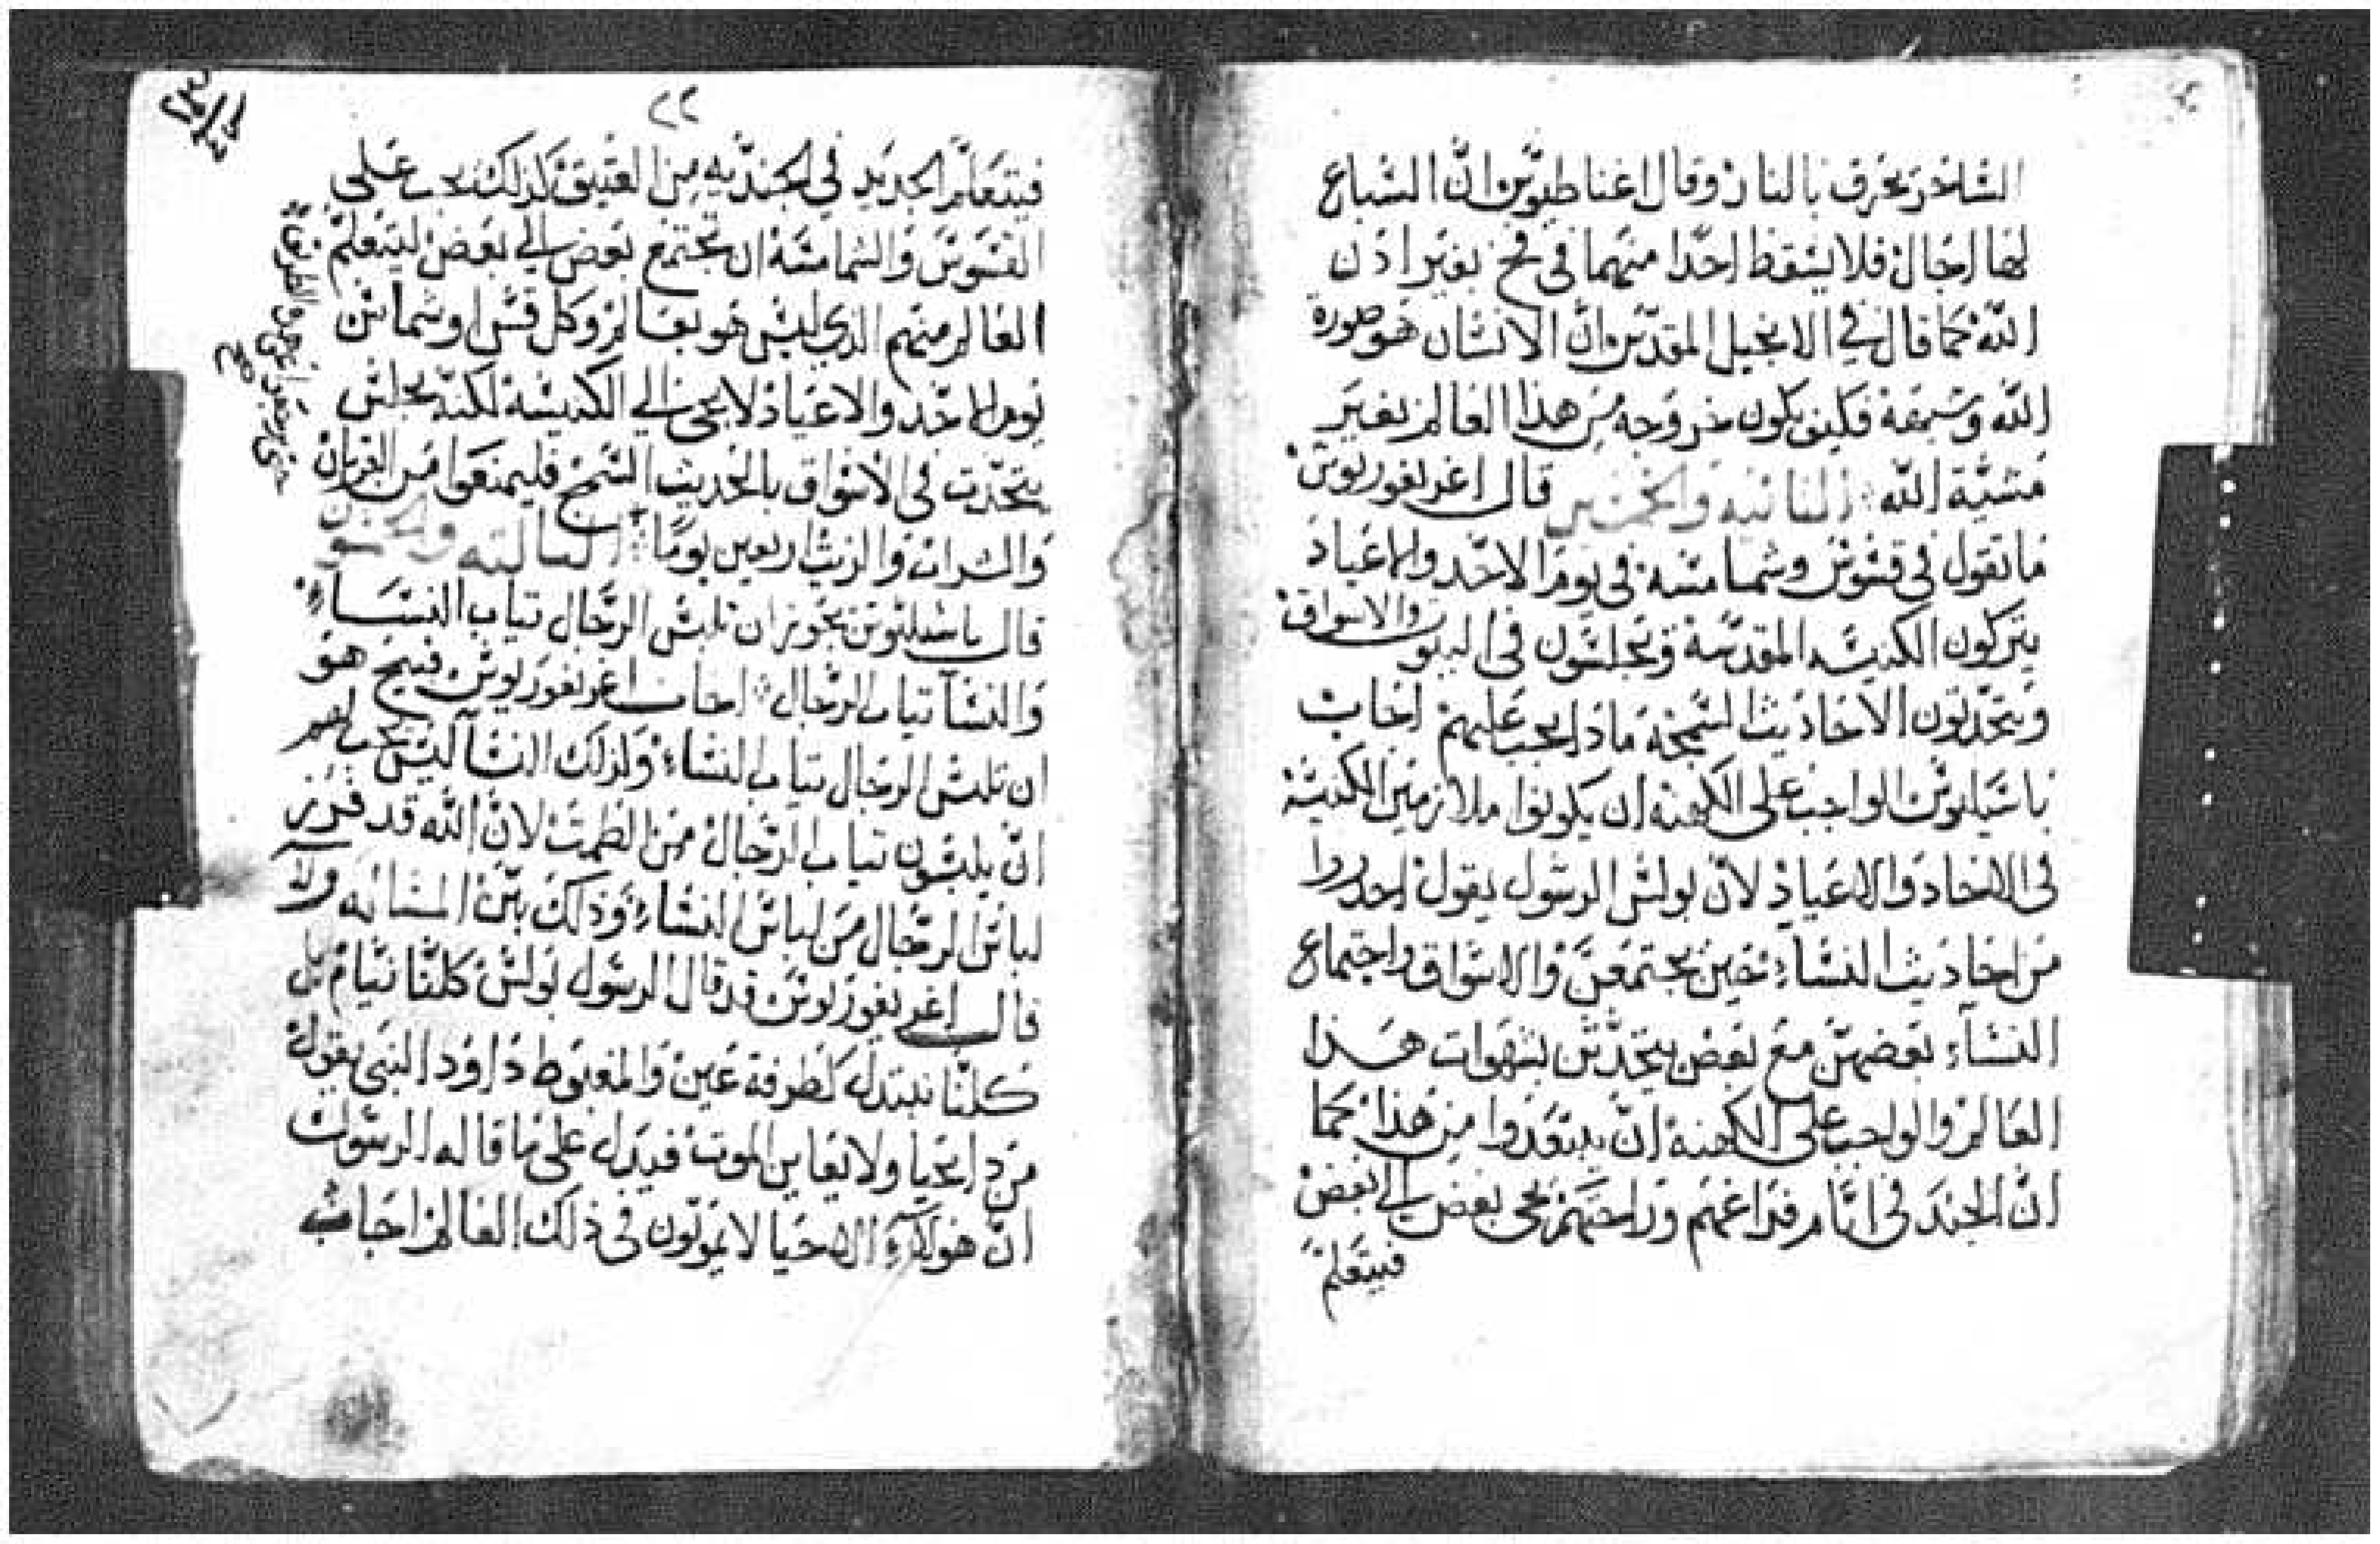 الساحر يحرق بالنار وقال اغناطيوس ان السباع
لها اجال فلا يسقط احدا منهما في فخ بغير اذن
الله كما قال في الانجيل المقدس وان الانسان هو صورة
الله وشبهه فكيف يكون خروجه من هذا العالم بغير
مشية الله الثانيه والخمسين قال اغريغوريوس
ما تقول في قسوس وشمامسه في يوم الاحد والاعياد
يتركون الكنيسه المقدسة ويجلسون في البيوت والاسواق
ويتحدثون الاحاديث السمجه ماذا يجب عليهم اجاب
باسيليوس الواجب على الكهنه ان يكونوا ملازمين الكنيسه
في الاحاد والاعياد لان بولس الرسول يقول احدروا
من احاديث النساء حين يجتمعن والاسواق واجتماع
النساء بعضهن مع بعض يتحدثن بشهوات هذا
العالم والواجب على الكهنه ان يبتعدوا من هذا كما
ان الجند في ايام فراغهم وراحتهم يجى بعض الى بعض
فيتعلم
٢٢
فيتعلم الجديد في الجنديه من العتيق كذلك يجب على
القسوس والشمامسه ان يجتمع بعض الى بعض ليتعلم
العالم منهم الذي ليس هو بعالم وكل قس او شماس
يوم الاحد والاعياد لا يجى الى الكنيسه لكنه يجلس
يتحدث في الاسواق بالحديث السمج فليمنعوا من القربان
والشراب والزيت اربعين يوما الثالثه والخمسون
قال باسيليوس يجوز ان تلبس الرجال تياب النساء
والنسا تياب الرجال اجاب اغريغوريوس قبيح هو
ان تلبس الرجال تياب النساء ولذلك النسا ليس يجب لهم
ان يلبسون تياب الرجال من الطمت لان الله قد فرز
لباس الرجال من لباس النساء وذلك بين المساله
قال اغريغوريوس قد قال الرسول بولس كلنا نيام بل
كلنا نبتدل كطرفة عين والمغبوط داوود النبي يقول
من دا يحيا ولا يعاين الموت فيدل على ما قاله الرسول
ان هولاء الاحيا لا يموتون في ذلك العالم اجاب